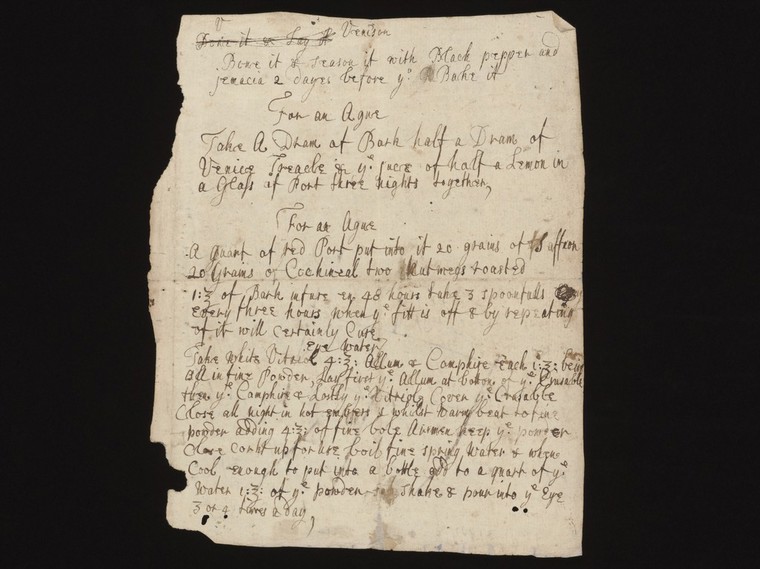 V
Bone it & Lay it Venison
Bone it & season it with Black pepper and
Jemacia 2 dayes before yᵉ Bake it
For an Ague
Take A Dram of Bark half a Dram of
Venice Treacle & yᵉ juce of half a Lemon in
a Glass of Port three nights together,
For an Ague
A quart of red Port put into it 20 grains of Saffron
20 Grains of Cochineal two Nutmegs roasted
1:℥ of Bark infuse em 48 hours take 3 spoonfulls
every three hours when yᵉ fitt is off & by repeating
of it will certainly Cure
Eye Water
Take white Vitriol 4:℥: Allum & Camphire each 1:℥: being
all in fine Powder Lay first yᵉ Allum at bottom of yᵉ Crusable
then yᵉ Camphire & Lastly yᵉ Vitriol Cover yᵉ Crusable
Close all night in hot embers & whilst warm beat to fine
powder adding 4:℥: of fine bole Armen keep yᵉ powder
close corkt up for use boil fine spring water & when
Cool enough to put into a bottle add to a quart of yᵉ
Water 1:℥: of yᵉ powder shake & pour into yᵉ Eye
3 or 4 times a day,